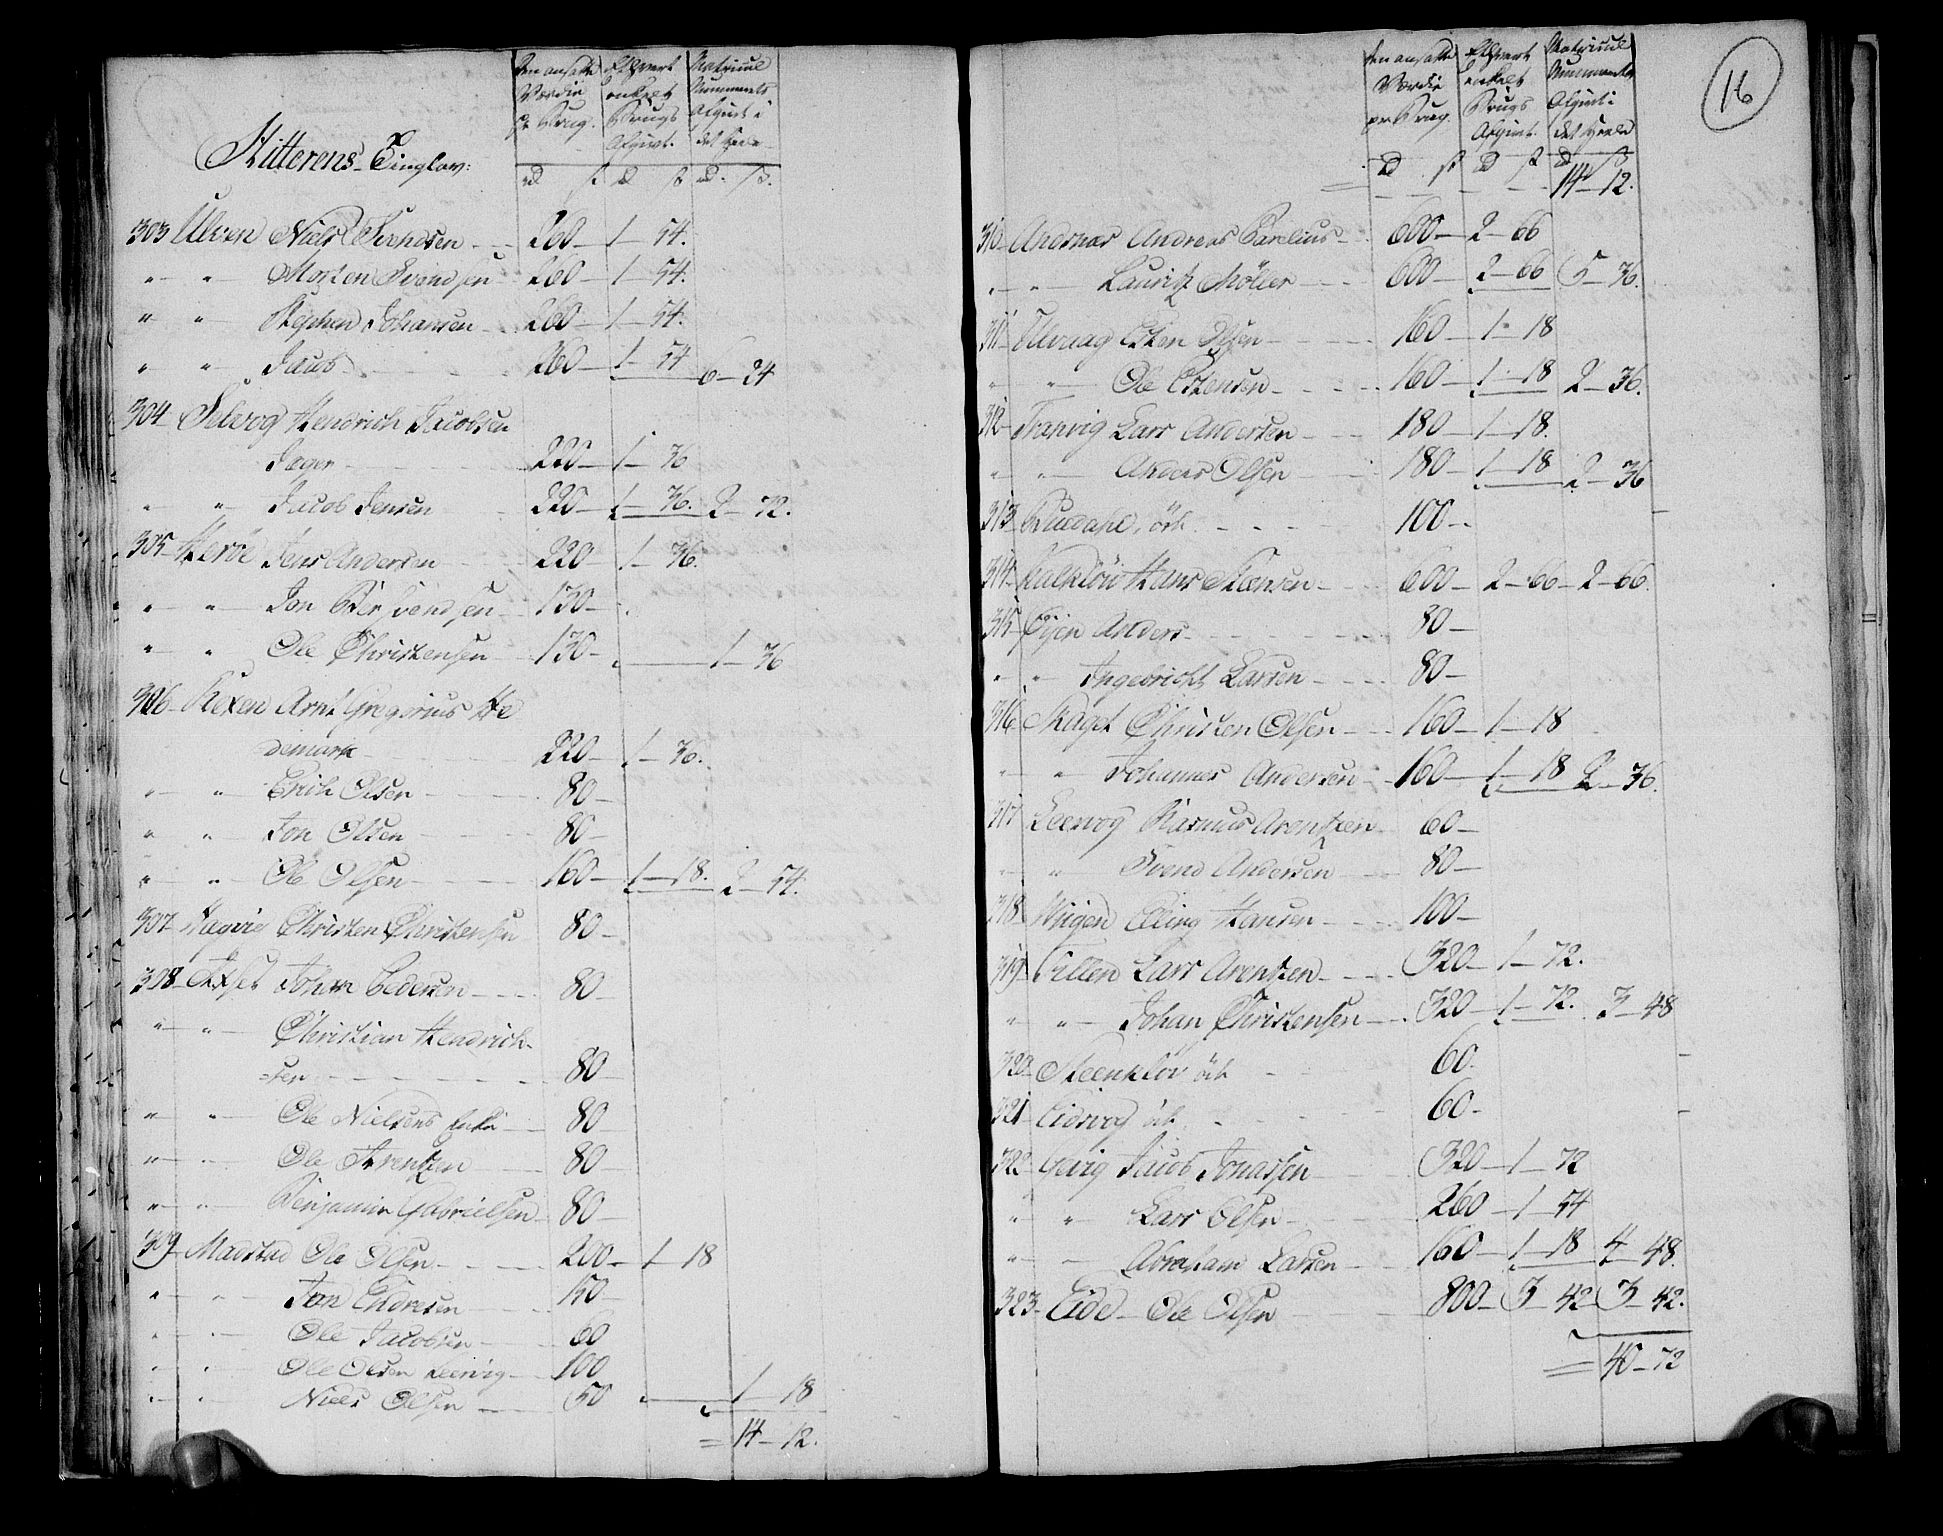 16
Hitterens Tinglav:
Den ansatte Værdie pr Brug. rd ß
Ethvert enkelt Brugs Afgivt. rd ß
Matricul Nummerets Afgivt i det Heele rd. ß.
303 Ulven Niels Svendsen 260 1 54.
" " Morten Svendsen 260 1 54.
" " Stephen Johansen 260 1 54.
" " Jacob 260 1 54 6 24
304 Selvog Hendrich Jacobsen
Jæger 220 1 36
" " Jacob Jensen 220 1 36. 2 72.
305 Herøe Jens Andersen 220 1 36.
" " Jon 130
" " Ole Christensen 130 1 36
306 Kexen Arnt Gregorius He
demark 220 1 36.
" " Erich Olsen 80
" " Jon Olsen 80
" " Ole Olsen 160 1 18. 2 54.
307 Hægvig Christen Christensen 80
308 Johan Pedersen 80
" " Christian Hendrich-
sen 80
" " Ole Nielsens Enke 80
" " Ole Arentzen 80
" " Benjamin Gabrielsen 80
309 Madstad Ole Olsen 200 1 18
" " Jon Endresen 150
" " Ole Jacobsen 60
" " Ole Olsen Leervig 100
" " Niels Olsen 50 1 18
= 14 12.
Den ansatte Værdie pr Brug. rd ß
Ethvert enkelt Brugs Afgivt. rd ß
Matricul Nummerets Afgivt i det Heele rd ß
= 14 12.
310 Andsnæs Andreas Parelius 600 2 66
" " Lauritz Møller 600 2 66 5 36.
311 Ulvaag Esten Olsen 160 1 18
" " Ole Estensen 160 1 18 2 36.
312 Tranvig Lars Andersen 180 1 18.
" " Anders Olsen 180 1 18 2 36
313 öde 100
314 Kalkløv Hans 600 2 66 2 66.
315 Øyen Anders 80
" " Ingebricht Larsen 80
316 Skaget Christen Olsen 160 1 18
" " Johannes Andersen 160 1 18 2 36.
317 Leervog Rasmus Arentzen 60
" " Svend Andersen 80
318 Wiigen Elling Hansen 100
319 Fillen Lars Arentzen 320 1 72.
" " Johan Christensen 320 1 72. 3 48
320 Steenkløv öde 60.
321 Eidsvog öde 60
322 Gevig Jacob Jonassen 320 1 72
" " Lars Olsen 260 1 54
" Abraham Larsen 160 1 18 4 48.
323 Eide Ole Olsen 800 3 42 3 42.
= 40 72